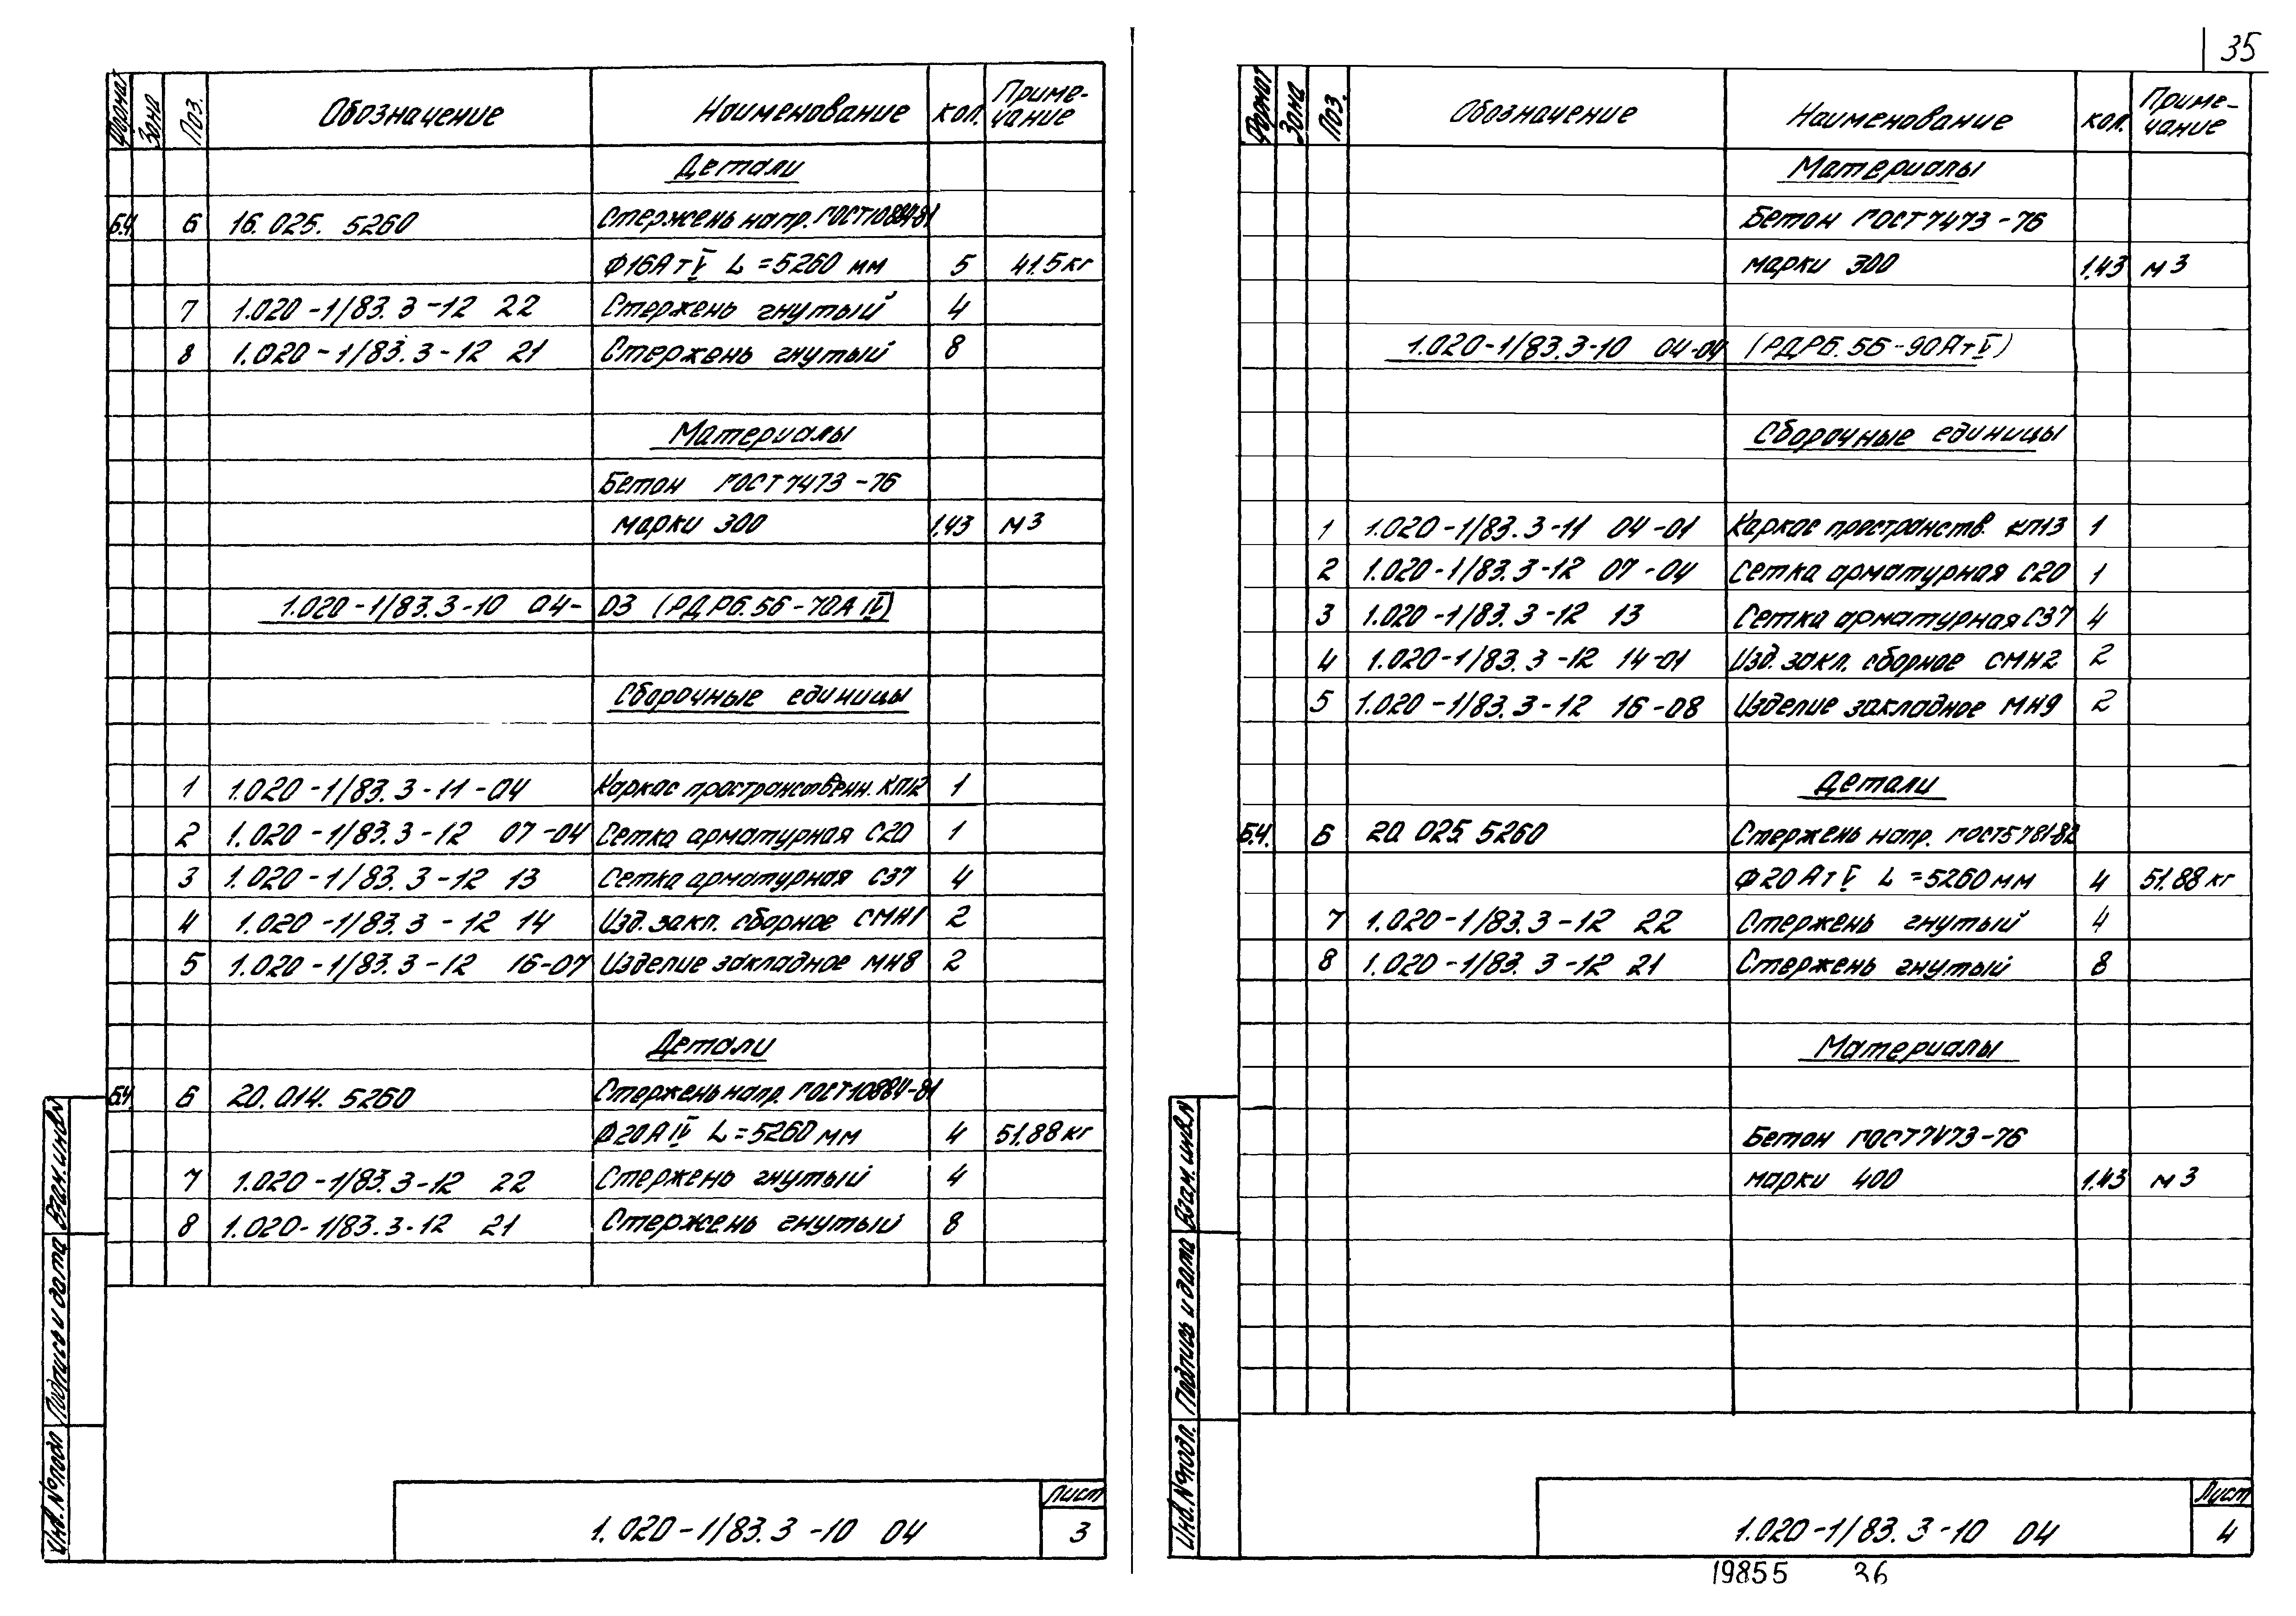 35
Формат Зона Поз. Обозначение Наименование Кол. Приме-
чание
Детали
Б.Ч. 6 16. 025. 5260 Стержень напр. ГОСТ10884-81
Ф16АтV L=5260 мм 5 41.5кг
7 1.020-1/83.3-12 22 Стержень гнутый 4
8 1.020-1/83.3-12 21 Стержень гнутый 8
Материалы
Бетон ГОСТ7473-76
марки 300 1,43 м3
1.020-1/83.3-10 04-03 (РДР6.56-70АIV)
Сборочные единицы
1 1.020-1/83.3-11-04 Каркас пространственн. КП12 1
2 1.020-1/83.3-12 07-04 Сетка арматурная С20 1
3 1.020-1/83.3-12 13 Сетка арматурная С37 4
4 1.020-1/83.3-12 14 Изд. закл. сборное СМН1 2
5 1.020-1/83.3-12 16-07 Изделие закладное МН8 2
Детали
Б.Ч. 6 20.014. 5260 Стержень напр. ГОСТ10884-81
Ф20АIV L=5260 мм 4 51.88кг
7 1.020-1/83.3-12 22 Стержень гнутый 4
8 1.020-1/83.3-12 21 Стержень гнутый 8
Инв.№подл Подпись и дата Взам.инв№
1.020-1/83.3-10 04
Лист
3
Формат Зона Поз. Обозначение Наименование Кол. Приме-
чание
Материалы
Бетон ГОСТ7473-76
марки 300 1,43 м3
1.020-1/83.3-10 04-04 (РДР6.56-90АтV)
Сборочные единицы
1 1.020-1/83.3-11 04-01 Каркас пространств. КП13 1
2 1.020-1/83.3-12 07-04 Сетка арматурная С20 1
3 1.020-1/83.3-12 13 Сетка арматурная С37 4
4 1.020-1/83.3-12 14-01 Изд. закл. сборное СМН2 2
5 1.020-1/83.3-12 16-08 Изделие закладное МН9 2
Детали
Б.Ч. 6 20 025 5260 Стержень напр. ГОСТ5781-82
Ф20АтV L=5260мм 4 51.88кг
7 1.020-1/83.3-12 22 Стержень гнутый 4
8 1.020-1/83.3-12 21 Стержень гнутый 8
Материалы
Бетон ГОСТ7473-76
марки 400 1,43 м3
Инв.№подл. Подпись и дата Взам.инв№
1.020-1/83.3-10 04
Лист
4
19855 36